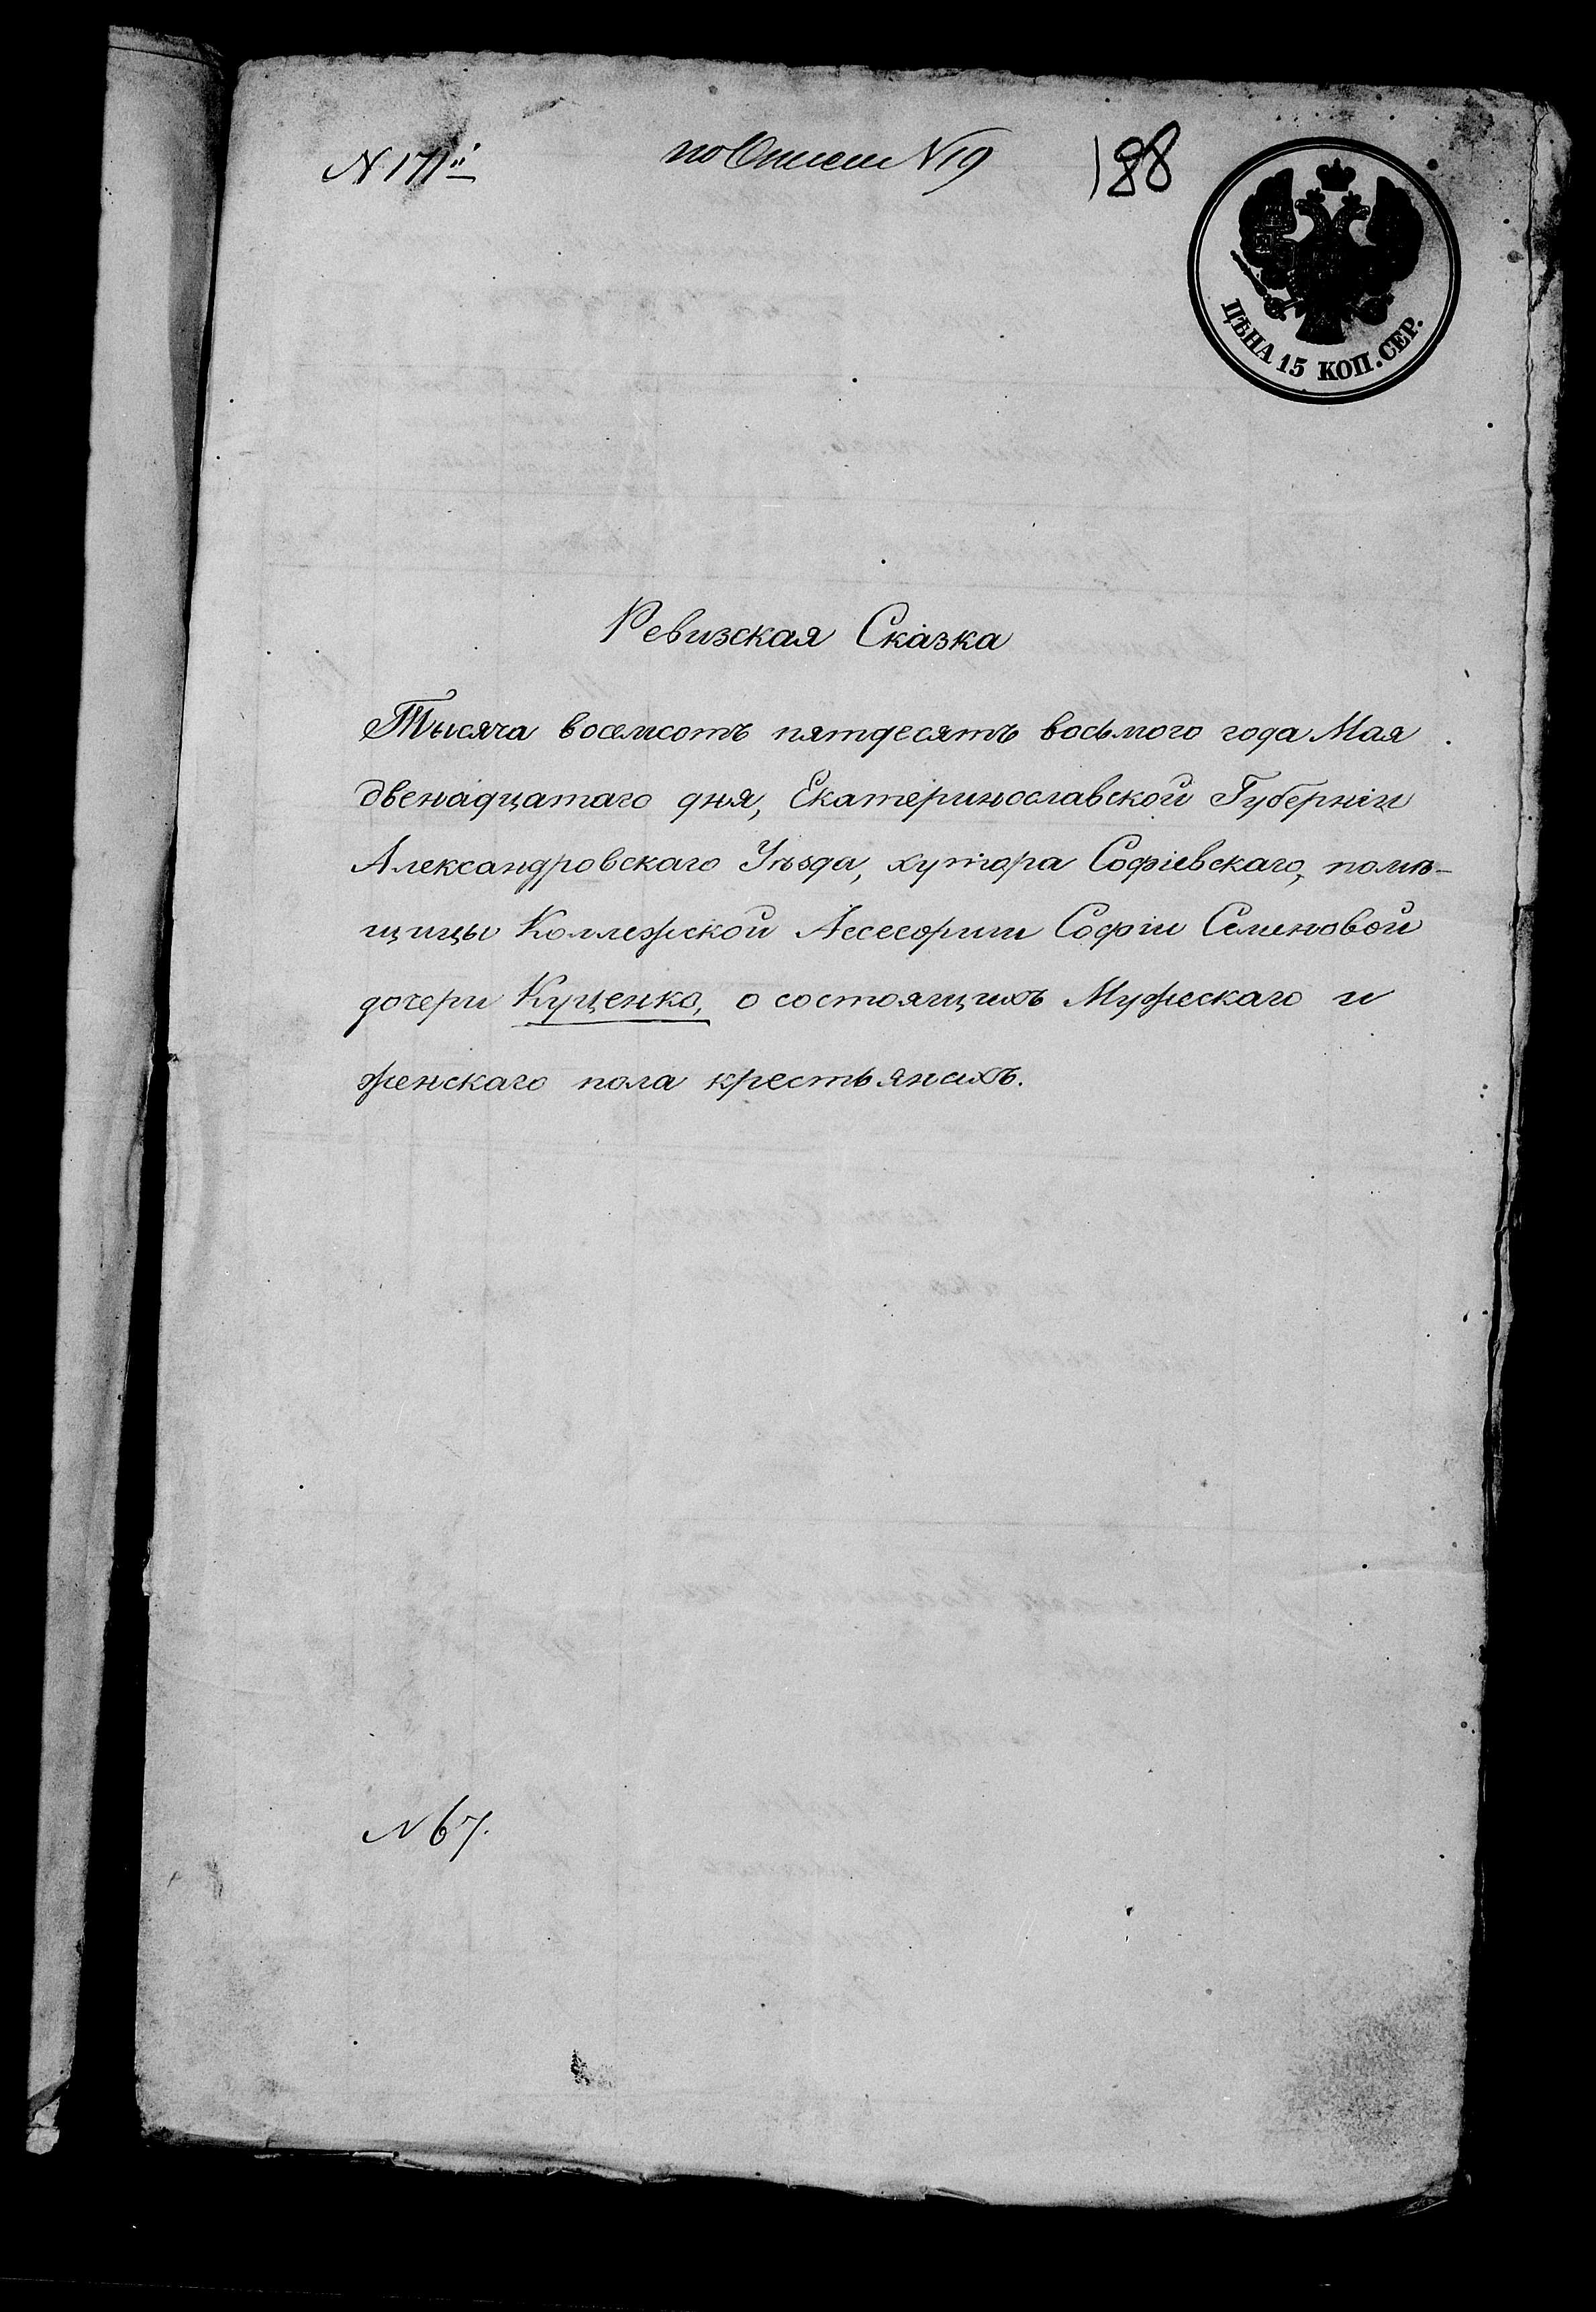 N 171й
по Описи N 19
188
ЦѢНА 15 КОП. СЕР.
Ревизская Сказка
Тысяча восемсотъ пятдесятъ восьмого года Мая
двенадцатаго дня, Екатеринославской Губерніи
Александровскаго Уѣзда, хутора Софіевскаго, помѣ-
щицы Коллежской Асесорши Софіи Семеновой
дочери Куценко, о состоящихъ Мужескаго и
женскаго пола крестьянахъ.
N 67.